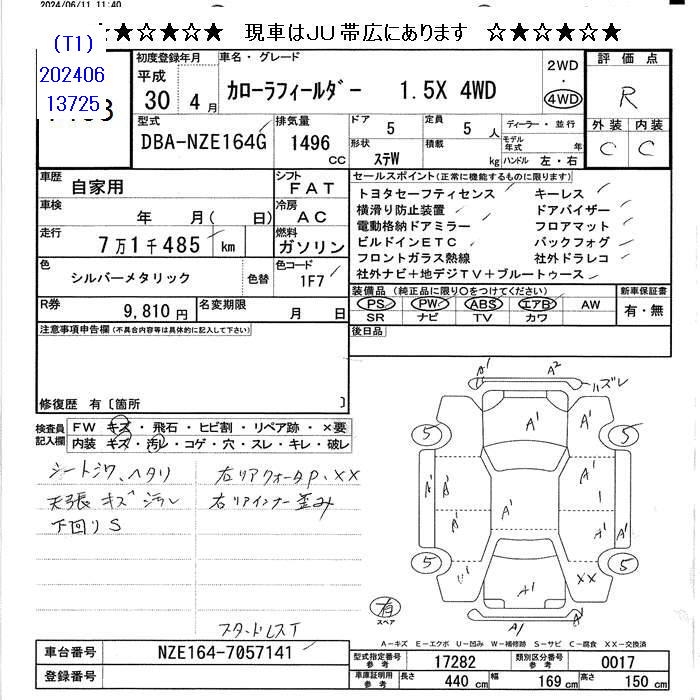 2024/06/11 11:40
☆★☆★☆★☆ 現車はJU帯広にあります ☆★☆★☆★☆
(T1)
202406
13725
初度登録年月 平成 30年 4月
車名・グレード カローラフィールダー 1.5X 4WD
2WD・4WD
評価点 R
外装 C 内装 C
型式 DBA-NZE164G
排気量 1496 CC
ドア 5 定員 5人
形状 ステW 積載 kg
ディーラー・並行
モデル年式 年
ハンドル 左・右
車歴 自家用
シフト FAT
車検 年 月( 日)
冷房 AC
走行 7万1千485 km
燃料 ガソリン
色 シルバーメタリック 色替
色コード 1F7
R券 9,810円
名変期限 月 日
セールスポイント(正常に機能するものに限ります)
トヨタセーフティセンス キーレス
横滑り防止装置 ドアバイザー
電動格納ドアミラー フロアマット
ビルドインETC バックフォグ
フロントガラス熱線 社外ドラレコ
社外ナビ+地デジTV+ブルートゥース
装備品(純正品に限り〇をつけてください) 新車保証書
PS PW ABS エアB AW 有・無
SR ナビ TV カワ
後日品
注意事項申告欄(不具合内容等は具体的に記入して下さい)
修復歴 有〔箇所 〕
検査員記入欄
FW キズ・飛石・ヒビ割・リペア跡・×要
内装 キズ・汚レ・コゲ・穴・スレ・キレ・破レ
シートシワ、ヘタリ 右リアクォータP.XX
天張キズ汚レ 右リアインナー歪み
下回りS
スタッドレスT
A1 A2 ハズレ
A1
5 5
A1 A1 A1 A1 1
A1 A1 A1
5 5
U1 A1 XX
A1
有 スペア
A-キズ E-エクボ U-凹み W-補修跡 S-サビ C-腐食 XX-交換済
車台番号 NZE164-7057141
登録番号
型式指定番号 参考 17282 類別区分番号 参考 0017
車庫証明用 参考 長さ 440 cm 幅 169 cm 高さ 150 cm